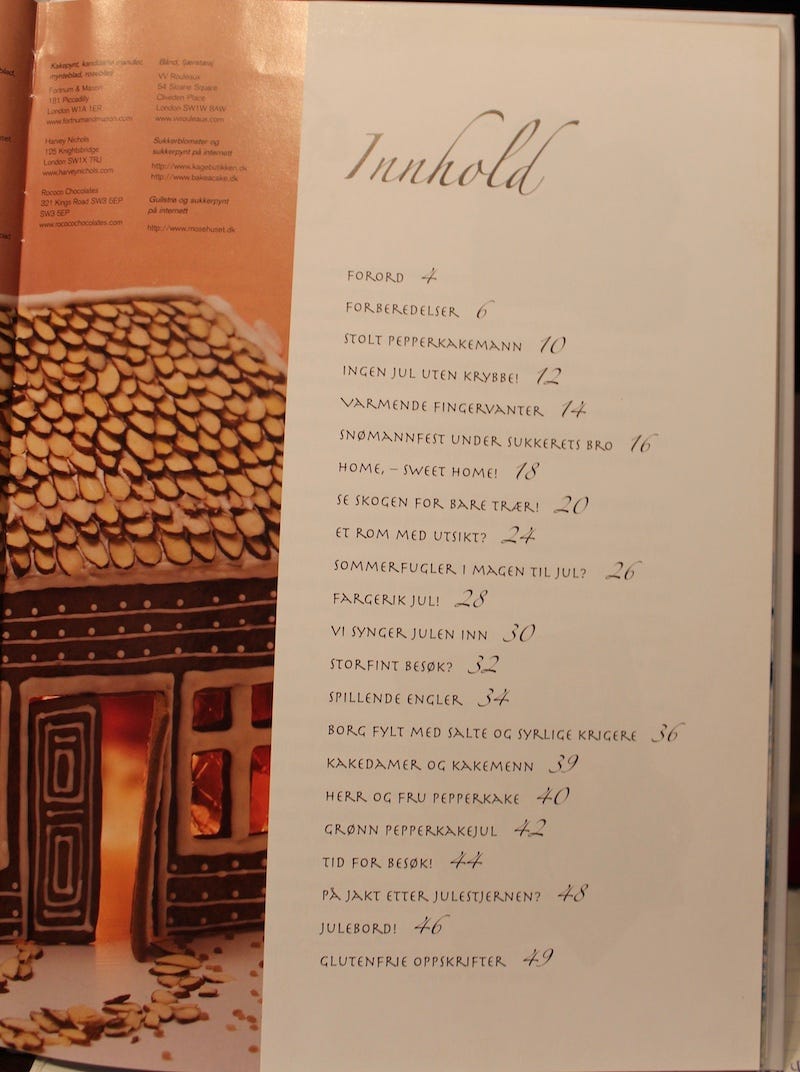 Kakepynt, kandiserte mandler,
mynteblad, roseblad
Fortnum & Mason
181 Piccadilly
London W1A 1ER
www.fortnumandmason.com
Harvey Nichols
125 Knightsbridge
London SW1X TRJ
www.harveynichols.com
Rococo Chocolates
321 Kings Road SW3 5EP
SW3 5EP
www.rococochocolates.com
Bånd,
VV Rouleaux
54 Sloane Square
Cliveden Place
London SW1W 8AW
www.vvrouleaux.com
Sukkerblomster og
sukkerpynt på internett
http://www.kagebutikken.dk
http://www.bakeacake.dk
Gullstrø og sukkerpynt
på internett
http://www.mosehuset.dk
Innhold
FORORD 4
FORBEREDELSER 6
STOLT PEPPERKAKEMANN 10
INGEN JUL UTEN KRYBBE! 12
VARMENDE FINGERVANTER 14
SNØMANNFEST UNDER SUKKERETS BRO 16
HOME, – SWEET HOME! 18
SE SKOGEN FOR BARE TRÆR! 20
ET ROM MED UTSIKT? 24
SOMMERFUGLER I MAGEN TIL JUL? 26
FARGERIK JUL! 28
VI SYNGER JULEN INN 30
STORFINT BESØK? 32
SPILLENDE ENGLER 34
BORG FYLT MED SALTE OG SYRLIGE KRIGERE 36
KAKEDAMER OG KAKEMENN 39
HERR OG FRU PEPPERKAKE 40
GRØNN PEPPERKAKEJUL 42
TID FOR BESØK! 44
PÅ JAKT ETTER JULESTJERNEN? 48
JULEBORD! 46
GLUTENFRIE OPPSKRIFTER 49